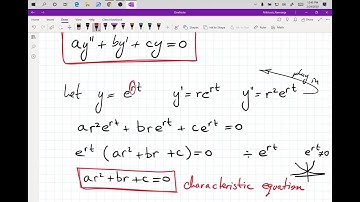 ay'' + by' + cy = 0
Let y = e^{rt} y' = re^{rt} y'' = r²e^{rt} plug in
ar²e^{rt} + bre^{rt} + ce^{rt} = 0
e^{rt} (ar² + br + c) = 0 ÷ e^{rt} e^{rt} ≠ 0
ar² + br + c = 0 characteristic equation